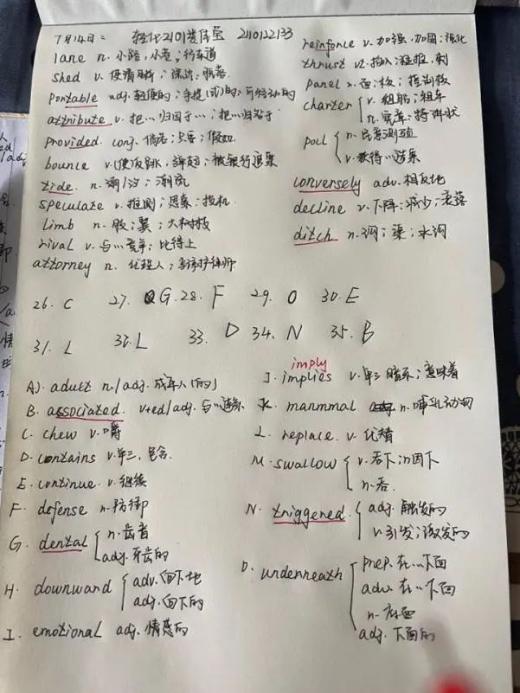 7月14日: 轻化2101 2110122133
lane n. 小路,小巷;行车道
shed v. 使清晰;
portable adj. 轻便的;手提(式)的;可移动的
attribute v. 把…归因于…;把…归咎于
provided conj. 倘若;只要;假如
bounce v. 使反跳,弹起;被银行退票
tide n. 潮汐;潮流
speculate v. 推测;思索;投机
limb n. 肢;翼;大树枝
rival v. 与…竞争;比得上
attorney n. 代理人;辩护律师
reinforce v. 加强,加固;强化
thrust vt. 插入;猛推,刺
panel n. 面板;控制板
charter v. 租船;租车
n. 宪章;特许状
poll n. 民意测验
v. 获得…选票
conversely adv. 相反地
decline v. 下降;减少;衰落
ditch n. 沟;渠;水沟
26. C 27. G 28. F 29. O 30. E
31. L 32. L 33. D 34. N 35. B
A). adult n./adj. 成年人(的)
B. associated v+ed/adj. 与…联系
C. chew v. 嚼
D. contains v. 单三,包含.
E. continue v. 继续
F. defense n. 防御
G. dental n. 齿音
adj. 牙齿的
H. downward adv. 向下地
adj. 向下的
I. emotional adj. 情感的
imply
J. implies v. 单三 暗示;意味着
K. manmmal n. 哺乳动物
L. replace v. 代替
M. swallow v. 吞下;咽下
n. 吞.
N. triggered adj. 触发的
v. 引发;激发的
O. underneath prep. 在…下面
adv. 在…下面
n. 底面
adj. 下面的